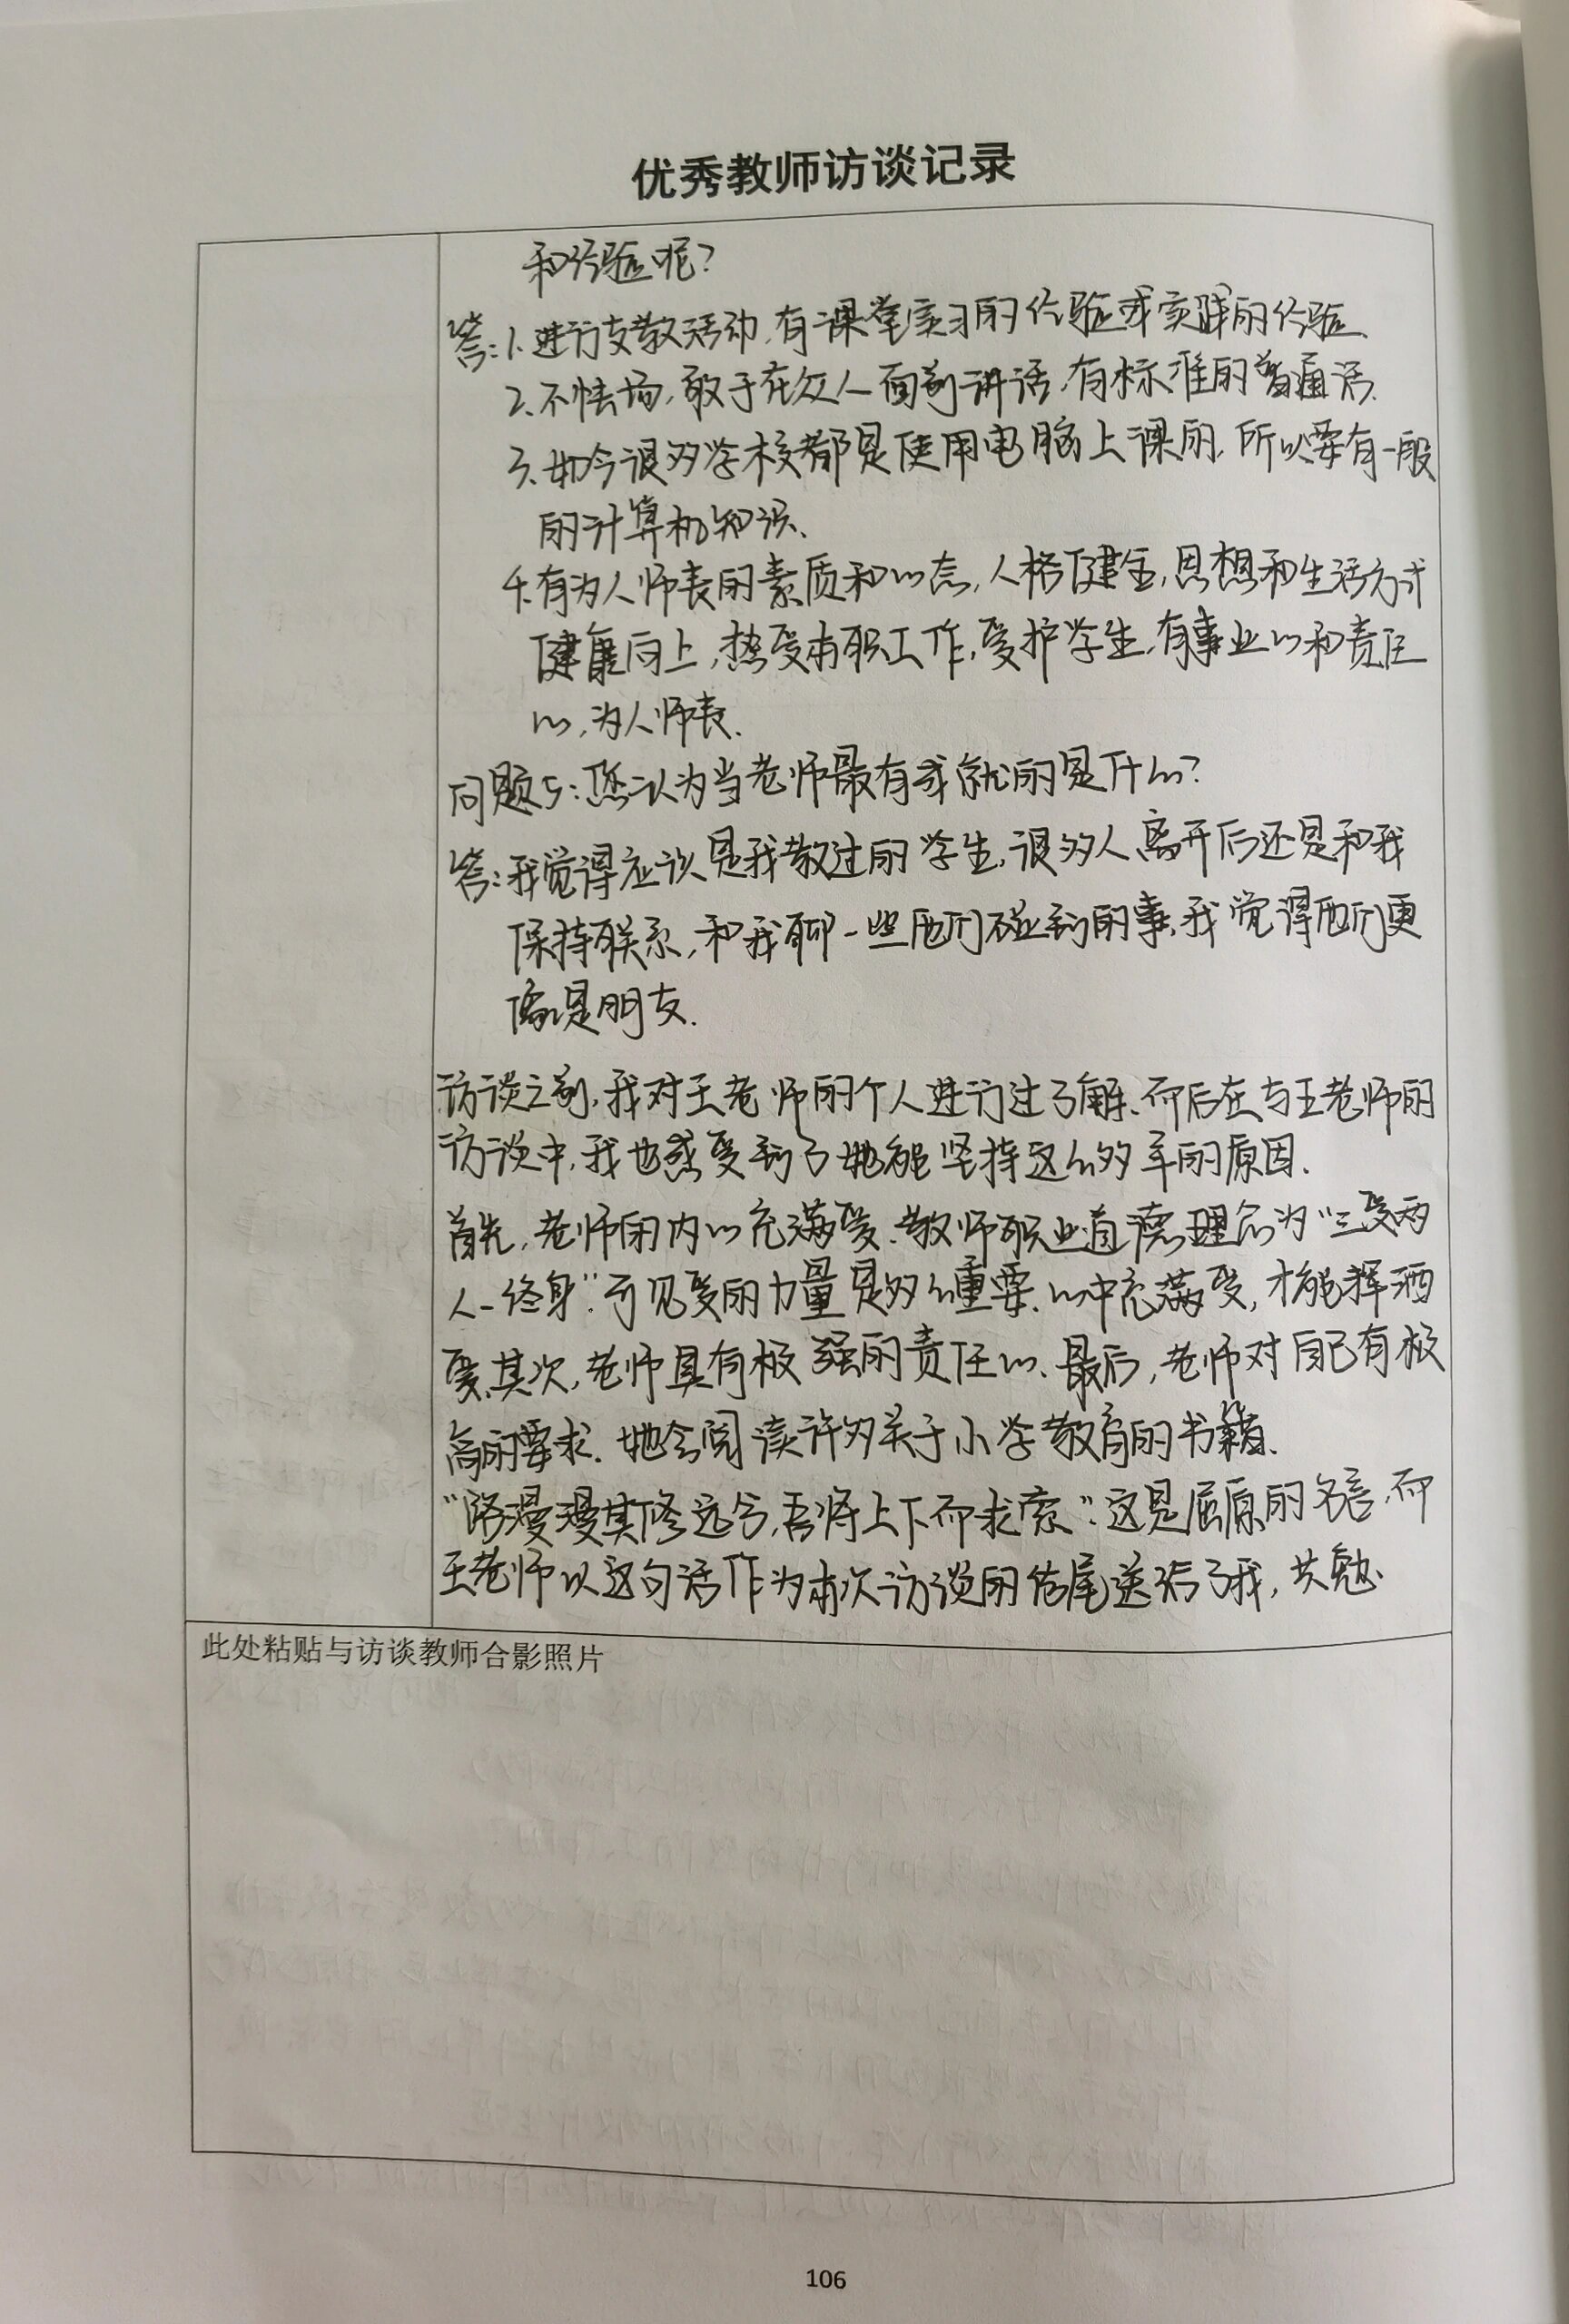 优秀教师访谈记录
和经验呢?
答:1.进行支教活动,有课堂实习的经验或实践的经验.
2.不怯场,敢于在众人面前讲话,有标准的普通话.
3.如今很多学校都是使用电脑上课的,所以要有一般
的计算机知识.
4.有为人师表的素质和心态,人格健全,思想和生活方式
健康向上,热爱本职工作,爱护学生,有事业心和责任
心,为人师表.
问题5:您认为当老师最有成就的是什么?
答:我觉得应该是我教过的学生,很多人离开后还是和我
保持联系,和我聊一些他们碰到的事,我觉得他们更
像是朋友.
访谈之前,我对王老师的个人进行过了解.而后在与王老师的
访谈中,我也感受到了她能坚持这么多年的原因.
首先,老师的内心充满爱.教师职业道德理念为“三爱两
人一终身”.可见爱的力量是多么重要.心中充满爱,才能挥洒
爱.其次,老师具有极强的责任心.最后,老师对自己有极
高的要求.她会阅读许多关于小学教育的书籍.
“路漫漫其修远兮,吾将上下而求索”.这是屈原的名言,而
王老师以这句话作为本次访谈的结尾送给了我,共勉.
此处粘贴与访谈教师合影照片
106